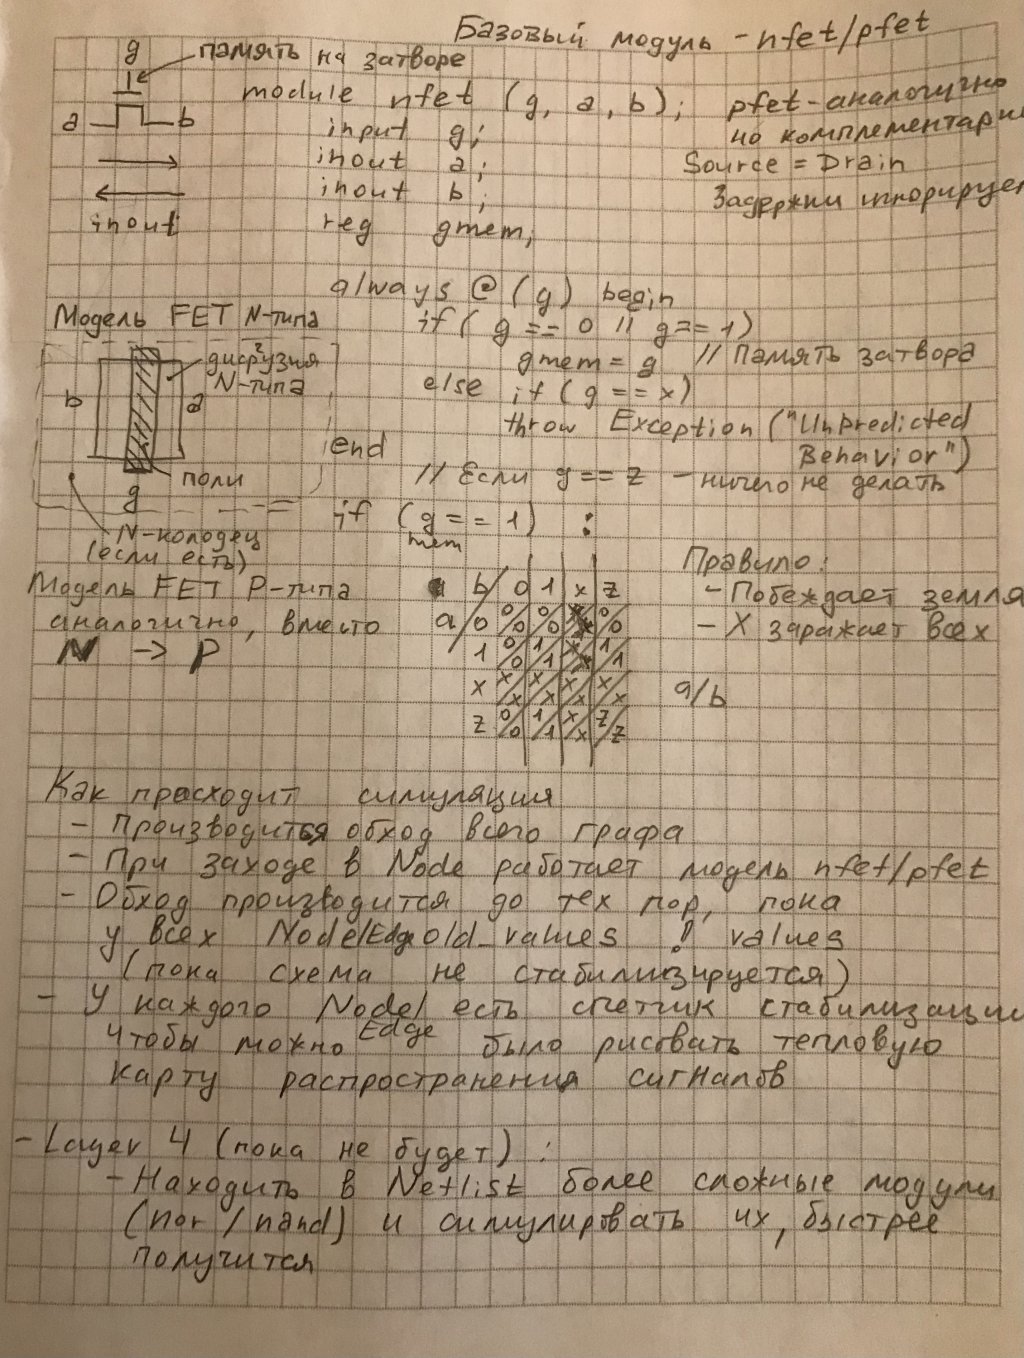 Базовый модуль - nfet/pfet
g
память на затворе
a b
inout
module nfet (g, a, b);
input g;
inout a;
inout b;
reg gmem;
pfet - аналогично
но комплементарн
Source = Drain
Задержки игнорирует
always @ (g) begin
if ( g == 0 || g == 1)
gmem = g // Память затвора
else if ( g == x)
throw Exception ("Unpredicted
Behavior")
end
// Если g == z - ничего не делать
if (gmem == 1) :
Модель FET N-типа
диффузия
N-типа
b a
поли
g
N-колодец
(если есть)
Модель FET P-типа
аналогично, вместо
N → P
b/ 0 1 x z
a/ 0 0/0 0/0 0/0
1 0/0 1/1 1/1
x x/x x/x x/x x/x
z 0/0 1/1 x/x z/z
a/b
Правило:
- Побеждает земля
- X заражает всех
Как просходит симуляция
- Производится обход всего графа
- При заходе в Node работает модель nfet/pfet
- Обход производится до тех пор, пока
у всех Node/Edge old_values != values
(пока схема не стабилизируется)
- У каждого Node/Edge есть счетчик стабилизации
чтобы можно было рисовать тепловую
карту распространения сигналов
- Layer 4 (пока не будет) :
- Находить в Netlist более сложные модули
(nor / nand) и симулировать их, быстрее
получится